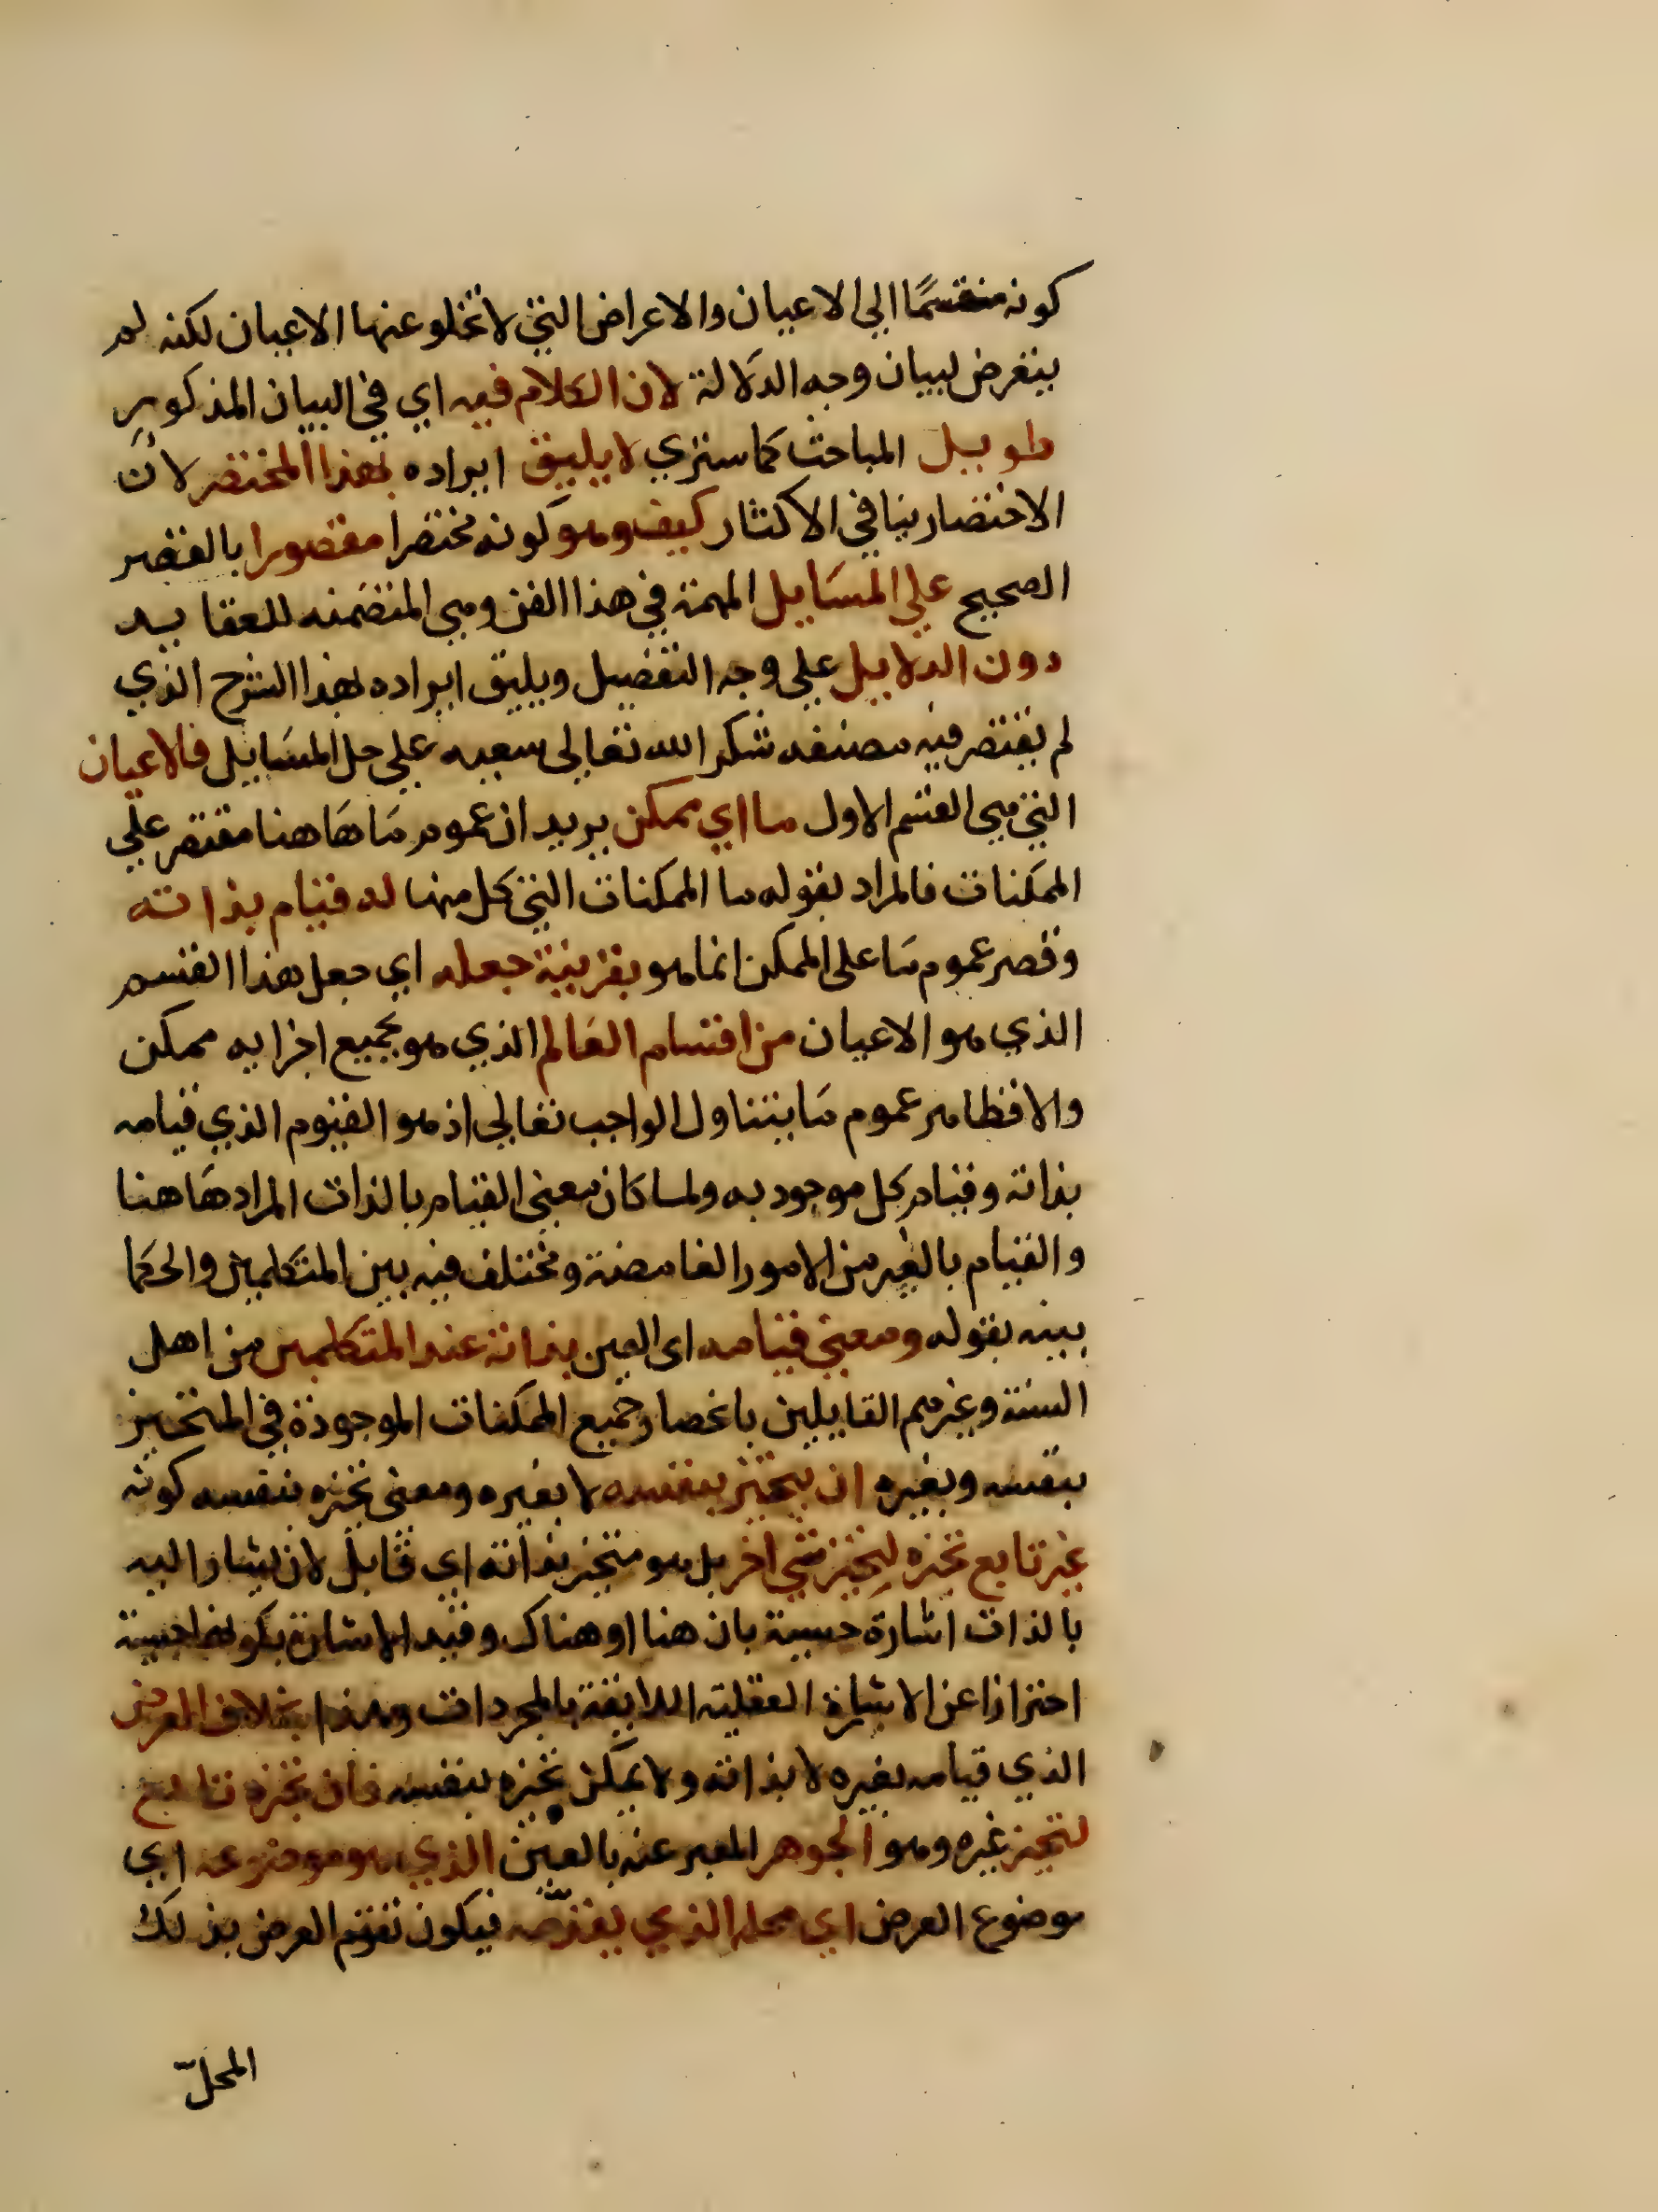 كونه منقسمًا الي الاعيان والاعراض التي لا تخلو عنها الاعيان لكنه لم
يتعرض لبيان وجه الدلالة لان الكلام فيه اي في البيان المذكور
طويل المباحث كما ستري لا يليق ايراده بهذا المختصر لان
الاختصار ينافي الاكثار كيف وهو كونه مختصرا مقصورا بالقصر
الصحيح علي المسَايل المهمة في هذا الفن وهي المتضمنه للعقايد
دون الدلايل علي وجه التفصيل ويليق ايراده بهذا الشرح الذي
لم يقتصر فيه مصنفه شكر الله تعالى سعيه علي حل المسَايل فالاعيان
التي هي القسم الاول ما اي ممكن يريد ان عموم مَا هَاهنا مقتصر علي
الممكنات فالمراد بقوله ما الممكنات التي كل منها له قيام بذاته
وقصر عموم مَا على الممكن انما هو بقرينة جعله اي جعل هذا القسم
الذي هو الاعيان من اقسام العَالم الذي هو بجميع اجزايه ممكن
والا فظاهر عموم مَا يتناول الواجب تعالي اذ هو القيوم الذي قيامه
بذاته وقيام كل موجود به ولما كان معنى القيام بالذات المراد هَاهنا
والقيام بالغير من الامور الغامضة ومختلف فيه بين المتكلمين والحكما
بينه بقوله ومعني قيامه اى العين بذاته عند المتكلمين من اهل
السنة وغيرهم القايلين بانحصار جميع الممكنات الموجودة في المتحيز
بنفسه وبغيره ان يتحيز بنفسه لا بغيره ومعنى تحيزه بنفسه كونه
غير تابع تحيزه لتحيز شي اخر بل هو متحيز بذاته اي قابل لان يشار اليه
بالذات اشارة حسية بان هنا او هناك وقيد الاشارة بكونها حسية
احترازا عن الاشارة العقلية اللايقة بالمجردات وهذا بخلاف العرض
الذي قيامه بغيره لا بذاته ولا يمكن تحيزه بنفسه فان تحيزه تابع
لتحيز غيره وهو الجوهر المعبر عنه بالعين الذي هو موضوعه اي
موضوع العرض اي محله الذي يقوّمه فيكون تقوم العرض بذلك
المحلّ